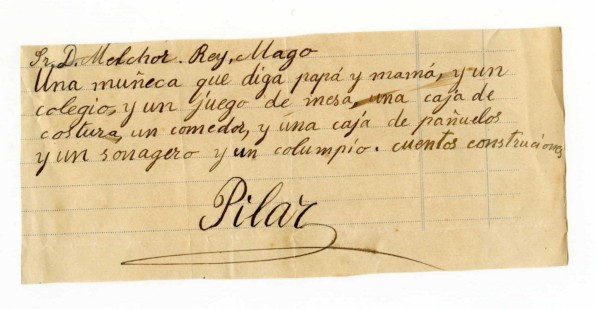 Sr. D. Melchor. Rey, Mago
Una muñeca que diga papá y mamá, y un
colegio, y un juego de mesa, una caja de
costura, un comedor, y una caja de pañuelos
y un sonagero y un columpio. cuentos construciones
Pilar